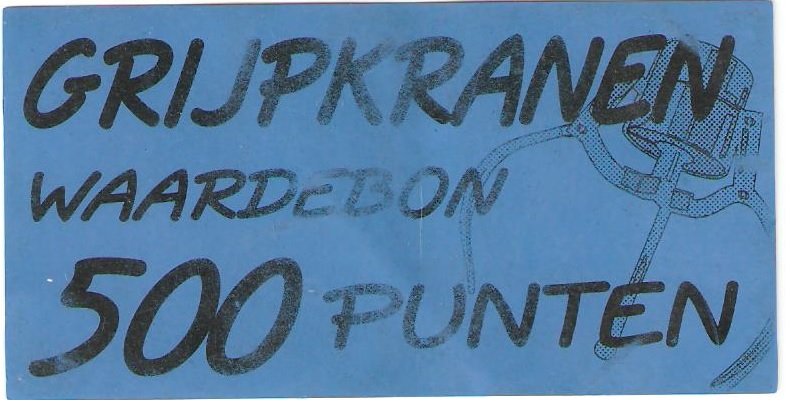 GRIJPKRANEN
WAARDEBON
500 PUNTEN